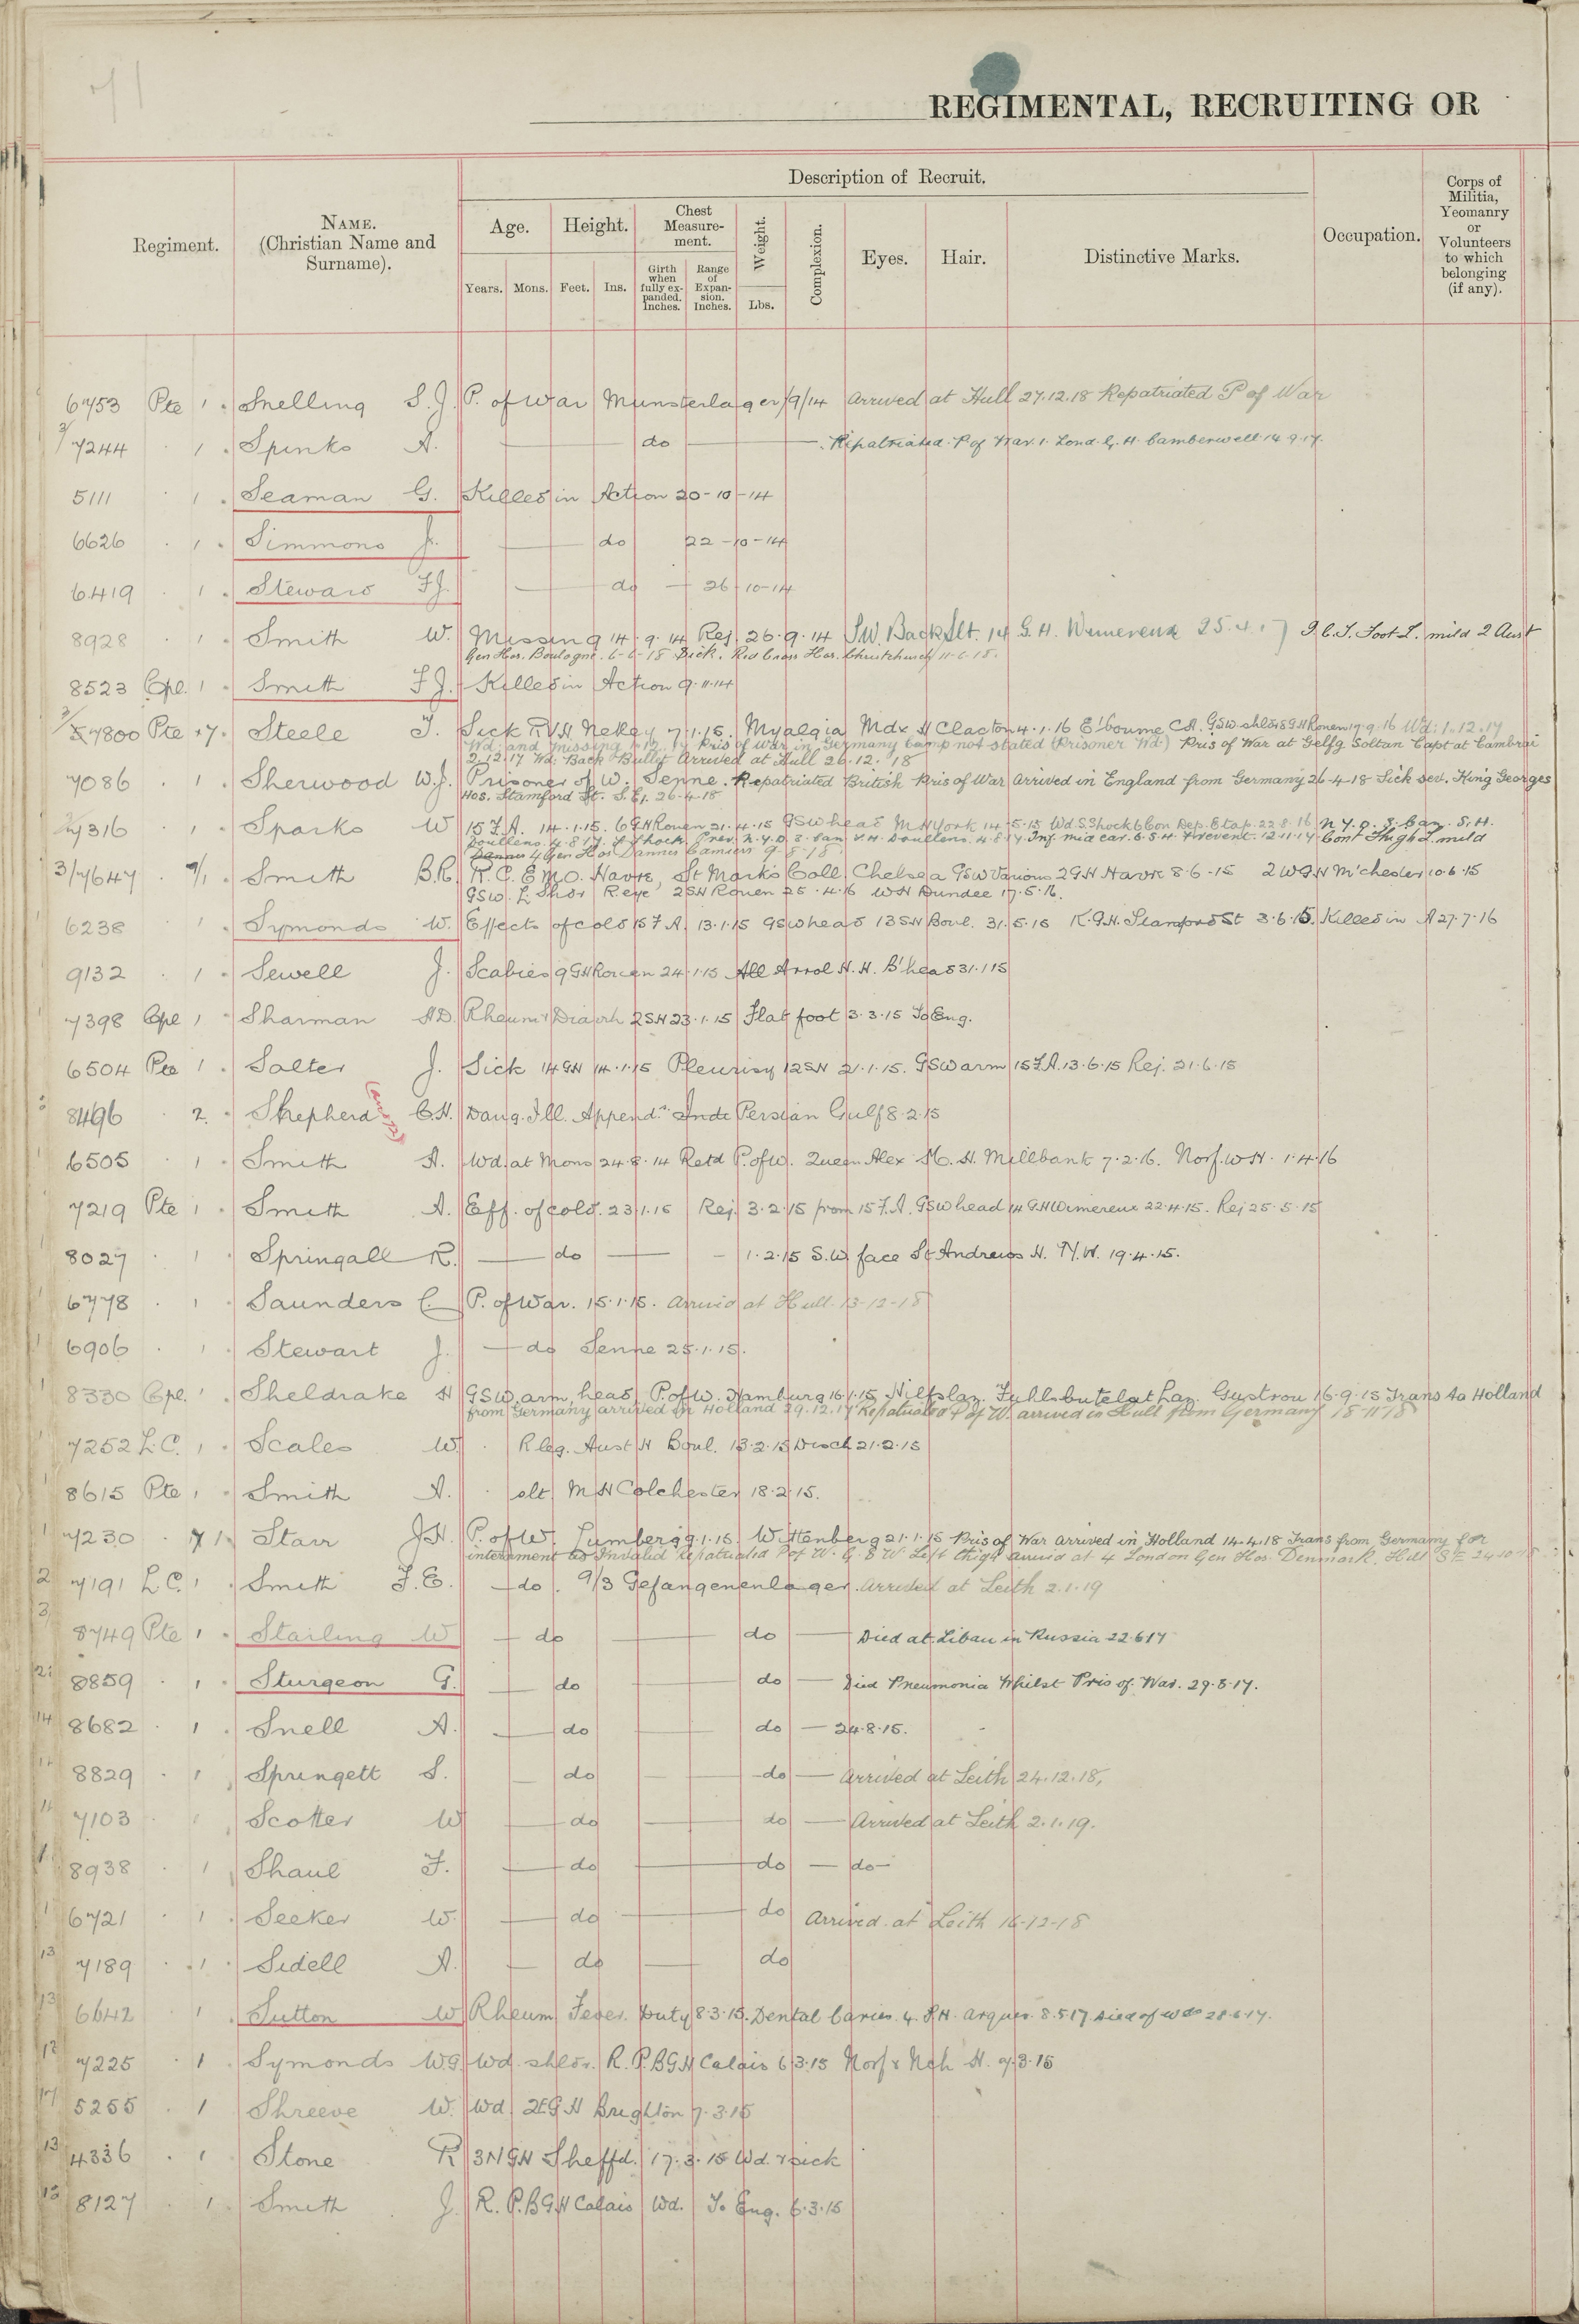 71
REGIMENTAL, RECRUITING OR
Regiment.
NAME.
(Christian Name and
Surname).
Description of Recruit.
Age.
Height.
Chest
Measure-
ment.
Weight.
Complexion.
Eyes.
Hair.
Distinctive Marks.
Occupation.
Corps of
Militia,
Yeomanry
or
Volunteers
to which
belonging
(if any).
Years.
Mons.
Feet.
Ins.
Girth
when
fully ex-
panded.
Inches.
Range
of
Expan-
sion.
Inches.
Lbs.
6753 Pte 1 " Snelling S.J. P. of War Munsterlager /9/14 Arrived at Hull 27.12.18 Repatriated P of War
3/7244 " 1 " Spinks A. do Repatriated P of War. 1. Lond. G. H. Camberwell 14.9.17.
5111 " 1 " Seaman G. Killed in Action 20-10-14
6626 " 1 " Simmons J. do 22-10-14
6419 " 1 " Steward F.J. do 26-10-14
8928 " 1 " Smith W. Missing 14.9.14 Rej. 26.9.14 S.W. Back Slt. 14 G.H. Wimereux 25.4.17 I.C.T. Foot L. mild 2 Aust
Gen Hos. Boulogne. 6-6-18 Sick. Red Cross Hos. Christchurch 11.6.18.
8523 Cpl. 1 " Smith F.J. Killed in Action 9.11.14
3/7800 Pte 17 " Steele J. Sick R.V.H Netley 7.1.15. Myalgia Mdx H Clacton 4.1.16 E'bourne C.H. GSW shldr 8 GH Rouen 17.9.16 Wd. 1.12.17
Wd. and missing 1.12.17 Pris of War in Germany camp not stated (Prisoner Wd.) Pris of War at Gelfg Soltan Capt at Cambrai
2.12.17 Wd. Back Bullet Arrived at Hull 26.12.18
7086 " 1 " Sherwood W.J. Prisoner of W. Senne. Repatriated British Pris of War arrived in England from Germany 26-4-18 Sick sev. King Georges
Hos. Stamford St. S.E.1. 26.4.18
7316 " 1 " Sparks W 15 F.A. 14.1.15. 6 GH Rouen 21.4.15 GSW head M H York 14.5.15 Wd. S. Shock 6 Con Dep. Etap. 22.8.16 N.Y.D. 3. Can. S.H.
Doullens. 4.8.17. Inf. mid ear. 6.S.H. Frevent. 12.11.17 Cont Thigh L. mild
4 Gen Hos Dannes Camiers 9.5.18
3/7647 " 9/1 " Smith B.R. R.C. E.M.O. Havre, St Marks Coll. Chelsea GSW Various 2 GH Havre 8-6-15 2 WGH M'chester 10.6.15
GSW. L Shdr R eye 2 SH Rouen 25.4.16 WH Dundee 17.5.16.
6238 " 1 " Symonds W. Effects of cold 15 F.A. 13.1.15 GSW head 13 SH Boul. 31.5.15 K.G.H. Stamford St 3.6.15. Killed in A 27.7.16
9132 " 1 " Sewell J. Scabies 9 GH Rouen 24.1.15 All Arrol H. H. B'head 31.1.15
7398 Cpl 1 " Sharman A.D. Rheum & Diarrh 2 SH 23.1.15 Flat foot 3.3.15 To Eng.
6504 Pte 1 " Salter J. Sick 14 GH 14.1.15 Pleurisy 12 SH 21.1.15. GSW arm 15 F.A. 13.6.15 Rej. 21.6.15
8496 " 2 " Shepherd C.H. Dang. Ill. Append. Inde Persian Gulf 8.2.15
6505 " 1 " Smith A. Wd. at Mons 24.8.14 Retd P. of W. Queen Alex M. H. Millbank 7.2.16. Norf. W H. 1.4.16
7219 Pte 1 " Smith A. Eff. of cold. 23.1.15 Rej. 3.2.15 from 15 F.A. GSW head 14 GH Wimereux 22.4.15. Rej 25.5.15
8027 " 1 " Springall R. do 1.2.15 S.W. face St Andrews H. M.H. 19.4.15.
6778 " 1 " Saunders C. P. of War. 15.1.15. Arrived at Hull. 13-12-18
6906 " 1 " Stewart J. do Senne 25.1.15.
8330 Cpl. 1 " Sheldrake H GSW arm, head P. of W. Hamburg 16.1.15 Hilfslaz. Gustrow 16.9.15 Trans to Holland
from Germany arrived in Holland 29.12.17 Repatriated P of W. arrived in Hull from Germany 18-11-18
7252 L.C. 1 " Scales W. R leg. Aust H Boul. 13.2.15 Disch 21.2.15
8615 Pte 1 " Smith A. slt M H Colchester 18.2.15.
7230 " 1 " Starr J.H. P. of W. 9.1.15. Wittenberg 21.1.15 Pris of War arrived in Holland 14.4.18 Trans from Germany for
internment as Invalid Repatriated P of W. G.S.W. Left thigh arrived at 4 London Gen Hos. Denmark Hill SE 24-10-18
7191 L.C. 1 " Smith F.E. do. 9/3 Gefangenenlager. Arrived at Leith 2.1.19
8749 Pte 1 " Starling W do do Died at Libau in Russia 22.6.17
8859 " 1 " Sturgeon G. do do Died Pneumonia Whilst Pris of War. 29.8.17.
8682 " 1 " Snell A. do do 24.8.15.
8829 " 1 " Springett S. do do Arrived at Leith 24.12.18.
7103 1 " Scotter W do do Arrived at Leith 2.1.19.
8938 " 1 " Shaul F. do do do
6721 " 1 " Seeker W. do do Arrived at Leith 16-12-18
7189 " 1 " Sidell A. do do
6642 " 1 " Sutton W Rheum Fever. Duty 8.3.15. Dental Caries. 4. S.H. Arques. 8.5.17 Died of wds 28.6.17.
7225 " 1 " Symonds W.G. Wd. shldr. R.P.B G.H Calais 6.3.15 Norf & Nch H. 9.3.15
5255 " 1 " Shreeve W. Wd 2 E G H Brighton 7.3.15
4336 " 1 " Stone R 3 N G H Sheffd. 17.3.15 Wd. & sick
8127 " 1 " Smith J. R.P.B G.H Calais Wd. To Eng. 6.3.15